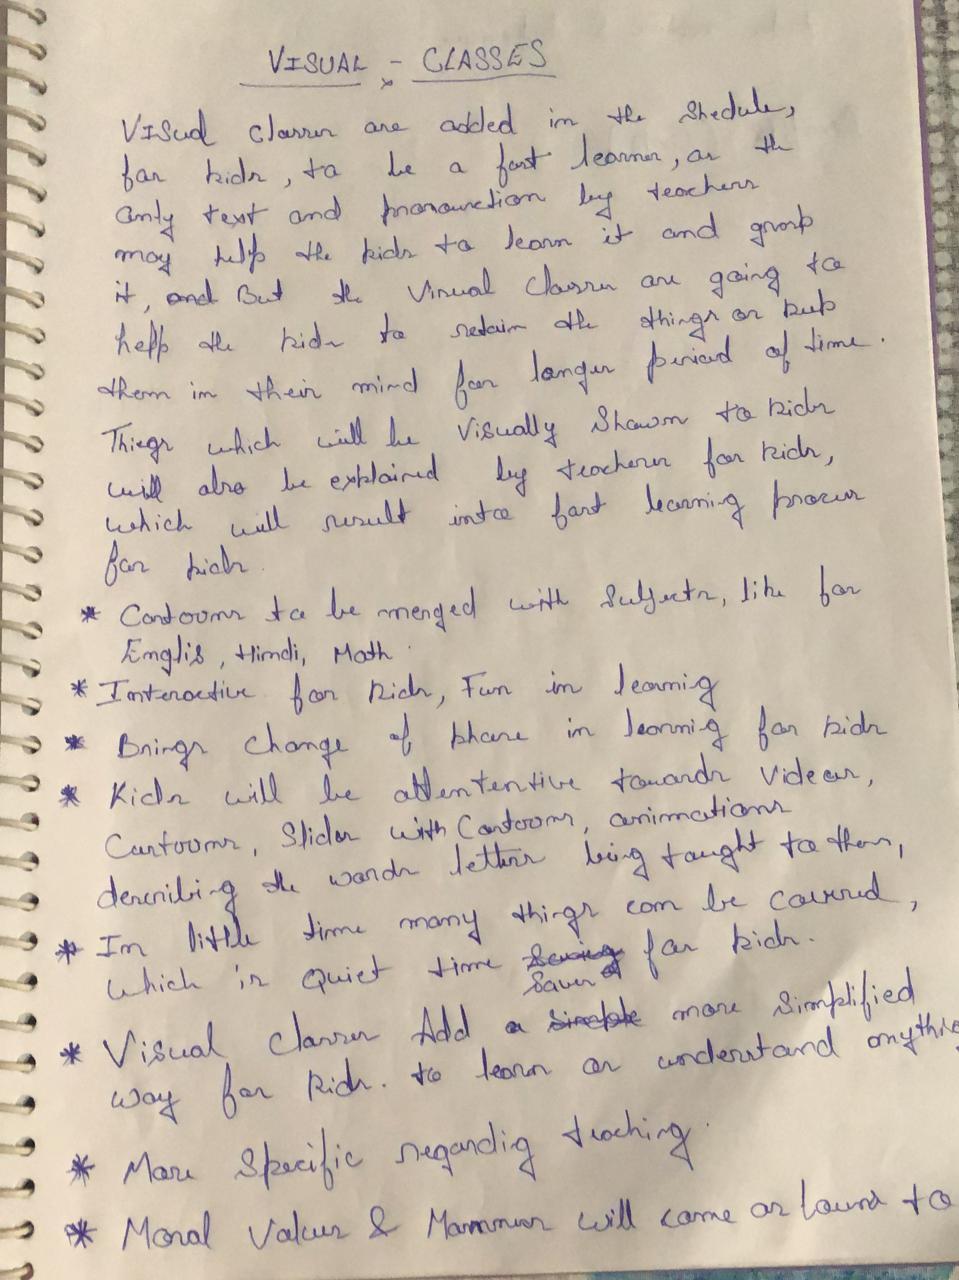 VISUAL - CLASSES
Visual classes are added in the Shedule,
for kids, to be a fast learner, as the
only text and pronounction by teachers
may help the kids to learn it and grasp
it, and But the Visual Classes are going to
help the kids to retain the things or kub
them in their mind for longer period of time.
Thiegs which will be Visually Shown to kids
will also be explained by teachers for kids,
which will result into fast learning process
for kids.
* Cartoons to be merged with Subjects, like for
Englis, Hindi, Math.
* Interactive for kids, Fun in learnig
* Brings change of phase in learnnig for kids
* Kids will be attententive towards Videos,
Cartoons, Slides with Cartoons, animations
describing the words letters being taught to them,
* In little time many things can be covered,
which is Quiet time Saver for kids.
* Visual classes Add a more Simplified
way for kids. to learn or understand anything
* More Specific regardig teaching.
* Moral Values & Manners will come as to